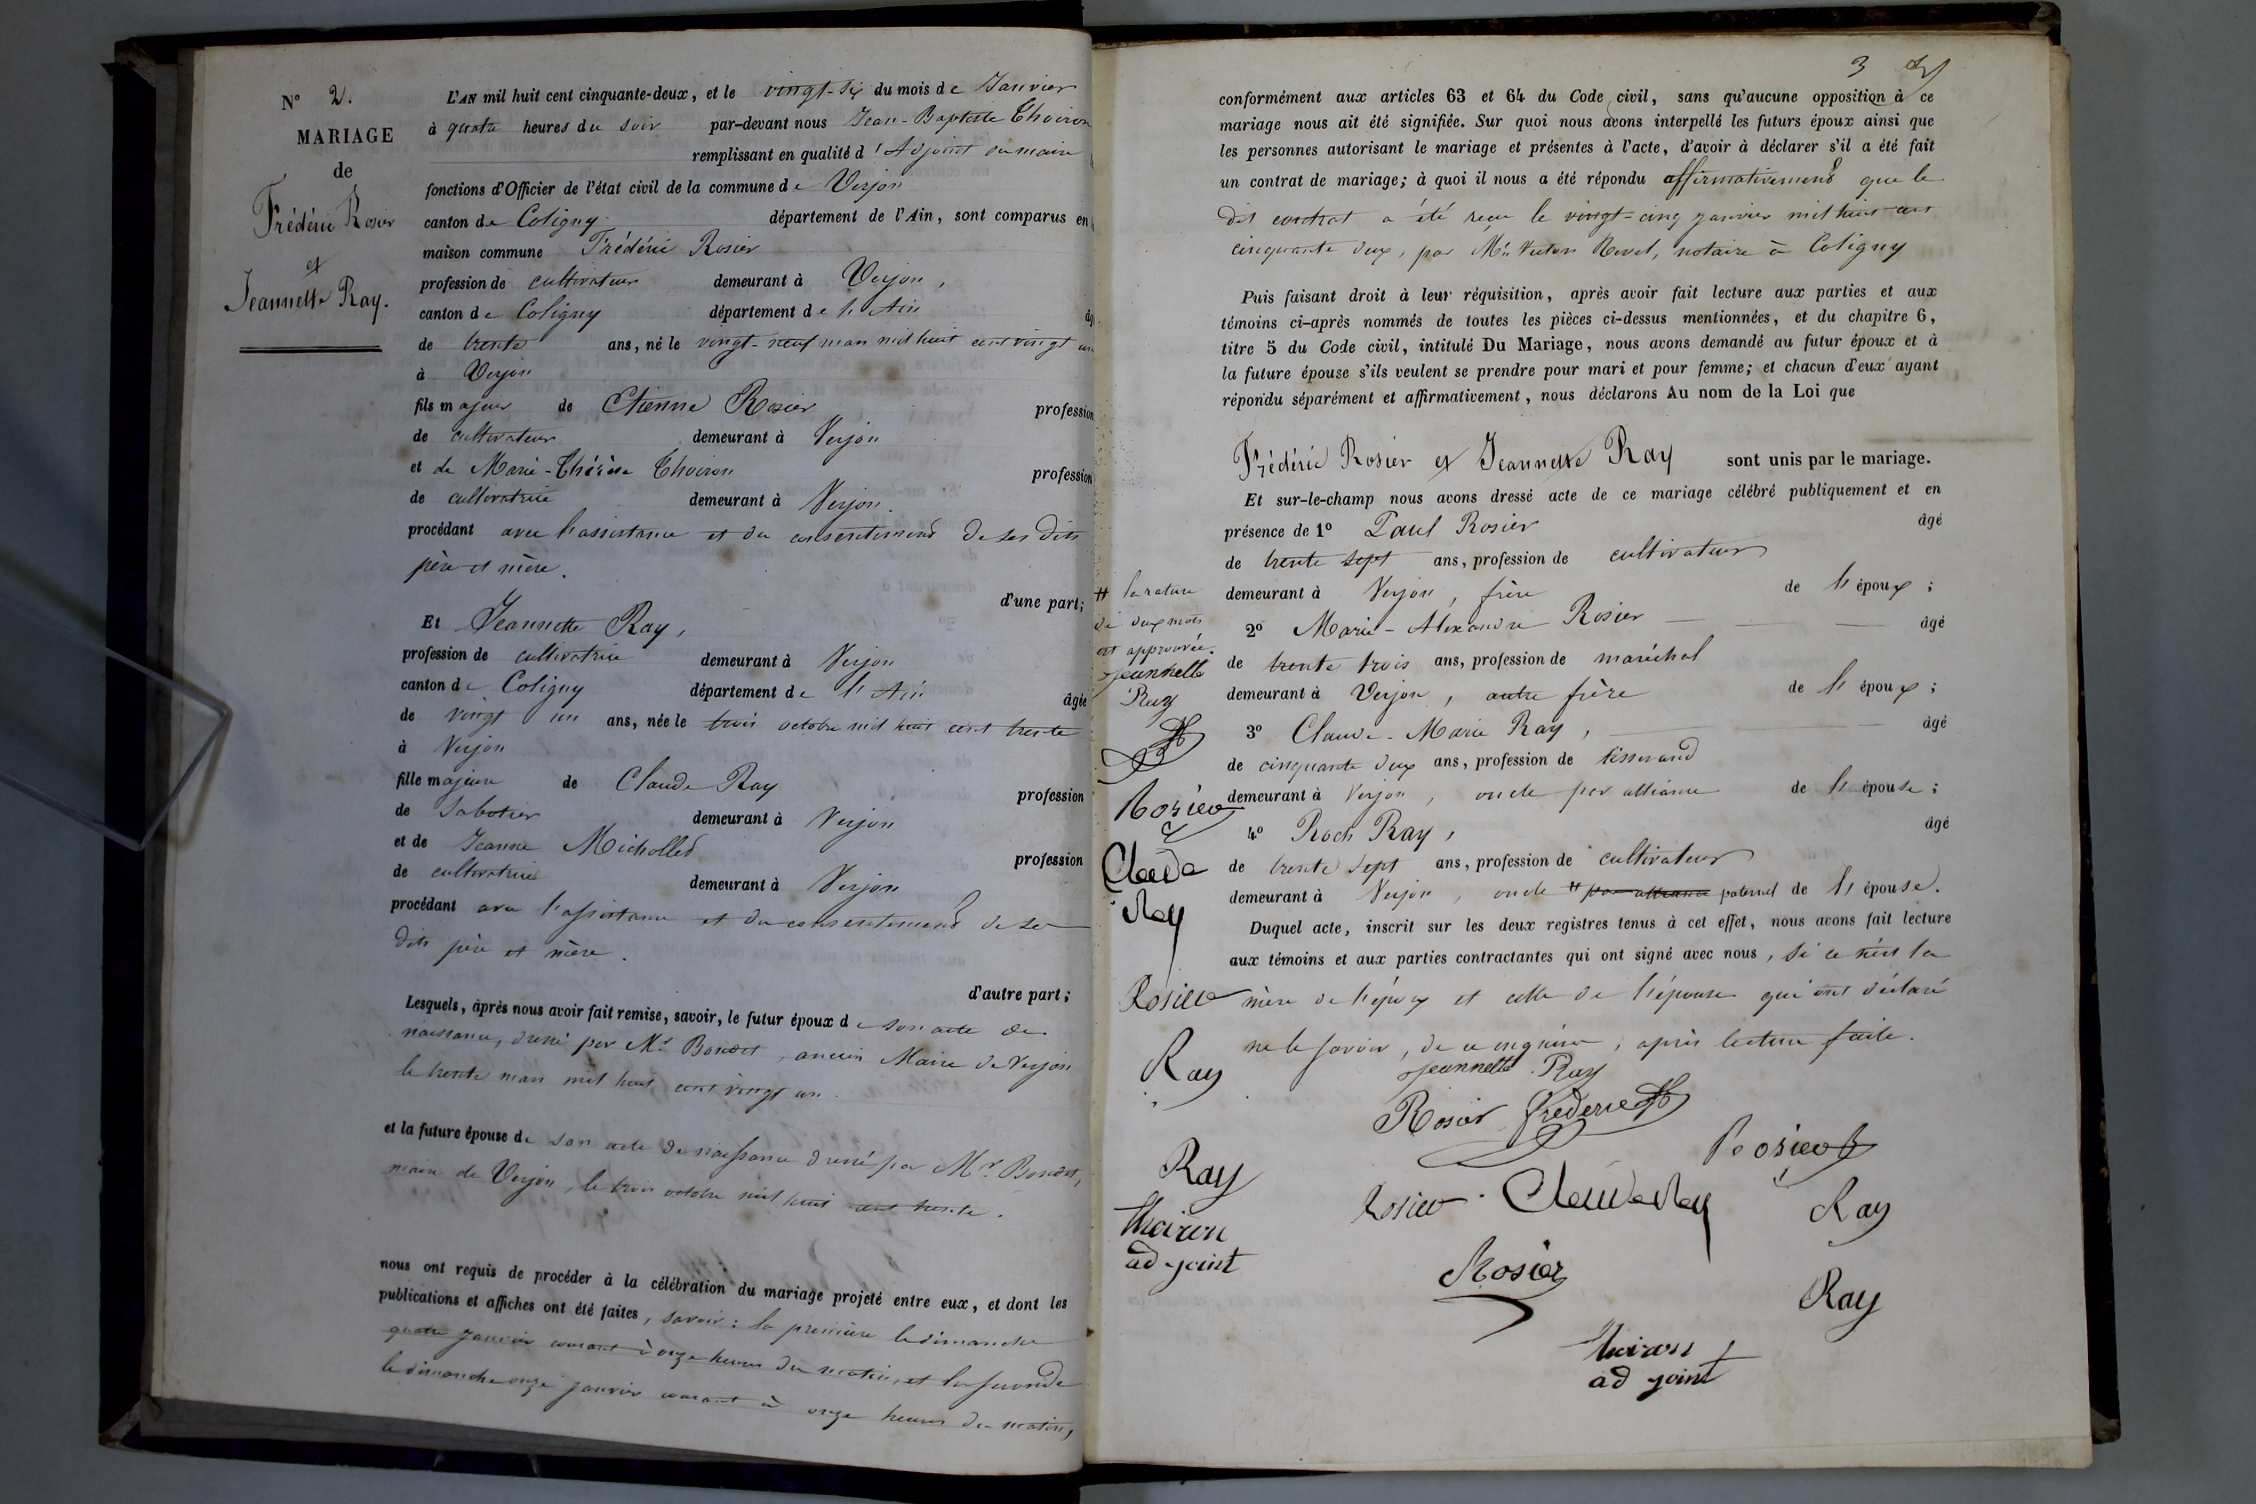 N° 2.
MARIAGE
de
Frédéric Rosier
et
Jeannette Ray.
L'AN mil huit cent cinquante-deux, et le vingt-six du mois de Janvier
à quatre heures du soir par-devant nous Jean-Baptiste Thoiron
remplissant en qualité d'Adjoint au maire
fonctions d'Officier de l'état civil de la commune de Verjon
canton de Coligny département de l'Ain, sont comparus en
maison commune Frédéric Rosier
profession de cultivateur demeurant à Verjon,
canton de Coligny département de l'Ain
de trente ans, né le vingt-neuf mars mil huit cent vingt un
à Verjon
fils majeur de Etienne Rosier profession
de cultivateur demeurant à Verjon
et de Marie-Thérèse Thoiron profession
de cultivatrice demeurant à Verjon.
procédant avec l'assistance et du consentement de ses dits
père et mère.
d'une part;
Et Jeannette Ray,
profession de cultivatrice demeurant à Verjon
canton de Coligny département de l'Ain âgée
de vingt un ans, née le trois octobre mil huit cent trente
à Verjon
fille majeure de Claude Ray profession
de sabotier demeurant à Verjon
et de Jeanne Michollet profession
de cultivatrice demeurant à Verjon
procédant avec l'assistance et du consentement de ses
dits père et mère.
d'autre part;
Lesquels, après nous avoir fait remise, savoir, le futur époux de son acte de
naissance, dressé par Mr ancien Maire de Verjon
le trente mars mil huit cent vingt un.
et la future épouse de son acte de naissance dressé par Mr
maire de Verjon, le trois octobre mil huit cent trente.
nous ont requis de procéder à la célébration du mariage projeté entre eux, et dont les
publications et affiches ont été faites, savoir: la première le dimanche
quatre janvier courant à onze heures du matin, et la seconde
le dimanche onze janvier courant à onze heures du matin,
3
conformément aux articles 63 et 64 du Code civil, sans qu'aucune opposition à ce
mariage nous ait été signifiée. Sur quoi nous avons interpellé les futurs époux ainsi que
les personnes autorisant le mariage et présentes à l'acte, d'avoir à déclarer s'il a été fait
un contrat de mariage; à quoi il nous a été répondu affirmativement que le
dit contrat a été reçu le vingt-cinq janvier mil huit cent
cinquante deux, par Me Victor notaire à Coligny
Puis faisant droit à leur réquisition, après avoir fait lecture aux parties et aux
témoins ci-après nommés de toutes les pièces ci-dessus mentionnées, et du chapitre 6,
titre 5 du Code civil, intitulé Du Mariage, nous avons demandé au futur époux et à
la future épouse s'ils veulent se prendre pour mari et pour femme; et chacun d'eux ayant
répondu séparément et affirmativement, nous déclarons Au nom de la Loi que
Frédéric Rosier et Jeannette Ray sont unis par le mariage.
Et sur-le-champ nous avons dressé acte de ce mariage célébré publiquement et en
présence de 1° Paul Rosier âgé
de trente sept ans, profession de cultivateur
demeurant à Verjon, frère de l'époux;
2° Marie-Alexandre Rosier âgé
de trente trois ans, profession de maréchal
demeurant à Verjon, autre frère de l'époux;
3° Claude-Marie Ray, âgé
de cinquante deux ans, profession de tisserand
demeurant à Verjon, oncle par alliance de l'épouse;
4° Roch Ray, âgé
de trente sept ans, profession de cultivateur
demeurant à Verjon, oncle # par alliance paternel de l'épouse.
Duquel acte, inscrit sur les deux registres tenus à cet effet, nous avons fait lecture
aux témoins et aux parties contractantes qui ont signé avec nous, si ce n'est la
mère de l'époux et celle de l'épouse qui ont déclaré
ne le savoir, de ce enquises, après lecture faite.
jeannette Ray
Rosier frederic
Rosier
Rosier Claude Ray
Ray
Rosier
Ray
thoiron
ad joint
# la rature
de deux mots
est approuvée.
jeannette
Ray
Rosier
Claude
Ray
Rosier
Ray
Ray
thoiron
ad-joint